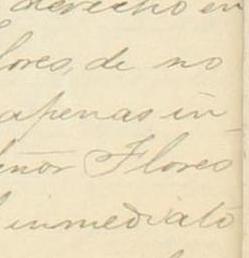 derecho en
lores, de no
apenas in-
eñor Flores
inmediato